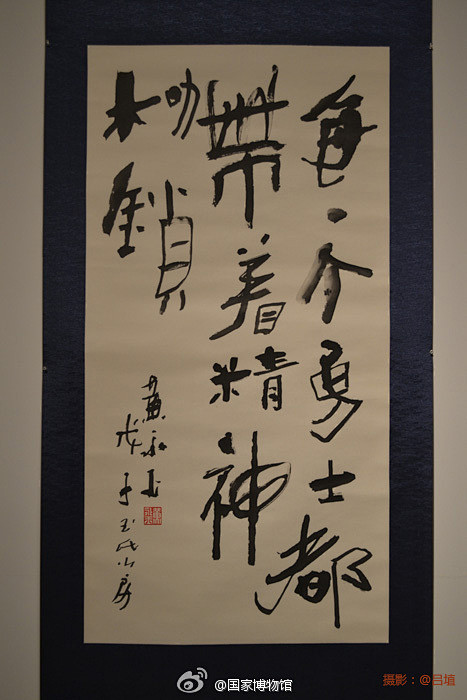 每一个勇士都
带着精神
枷鎖
黄永玉
于玉氏山房
@国家博物馆
摄影：@吕埴